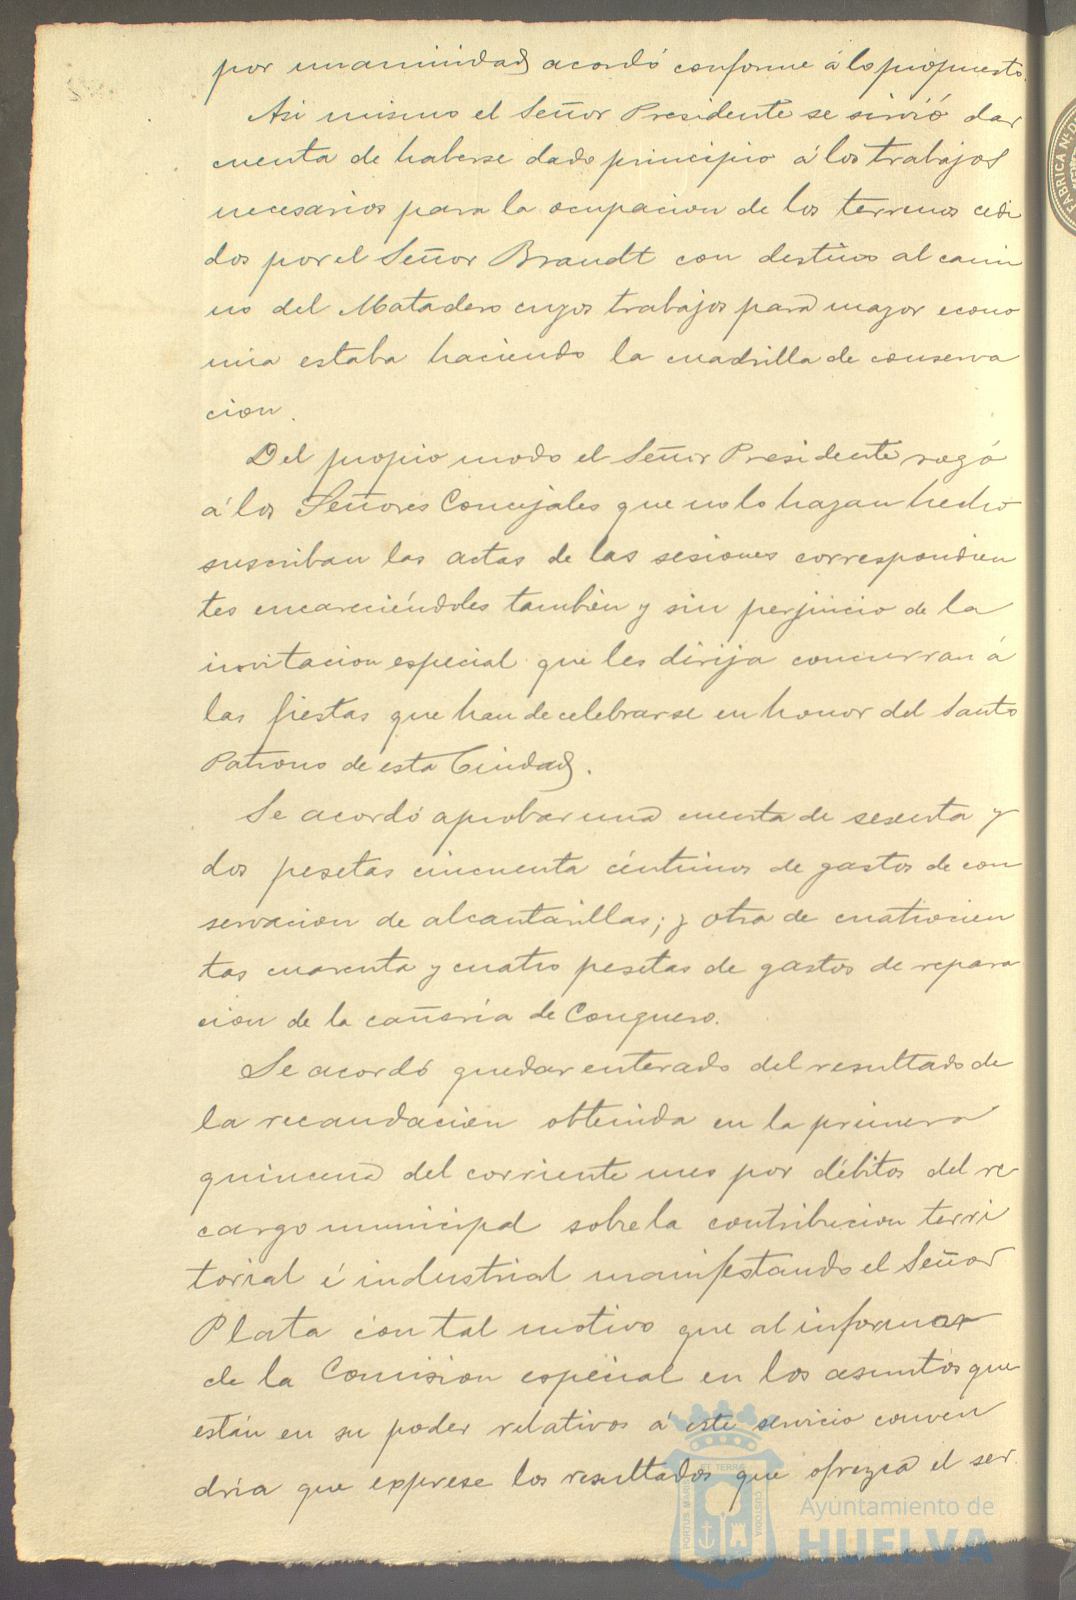 por unanimidad acordó conforme á lo propuesto.
Asi mismo el Señor Presidente se sirvió dar
cuenta de haberse dado principio á los trabajos
necesarios para la ocupacion de los terrenos cedi
dos por el Señor Brandt con destino al cami
no del Matadero cuyos trabajos para mayor econo
mia estaba haciendo la cuadrilla de conserva
cion.
Del propio modo el Señor Presidente rogó
á los Señores Concejales que no lo hayan hecho
suscriban las actas de las sesiones correspondien
tes encareciéndoles tambien y sin perjuicio de la
invitacion especial que les dirija concurran á
las fiestas que han de celebrarse en honor del Santo
Patrono de esta Ciudad.
Se acordó aprobar una cuenta de sesenta y
dos pesetas cincuenta céntimos de gastos de con
servacion de alcantarillas; y otra de cuatrocien
tas cuarenta y cuatro pesetas de gastos de repara
cion de la cañeria de Conquero.
Se acordó quedar enterado del resultado de
la recaudacion obtenida en la primera
quincena del corriente mes por débitos del re
cargo municipal sobre la contribucion terri
torial é industrial manifestando el Señor
Plata con tal motivo que al informar
de la Comision especial en los asuntos que
están en su poder relativos á este servicio conven
dria que exprese los resultados que ofrezca el ser
FABRICA Nº
PORTUS MARIS ET TERRAE CUSTODIA
Ayuntamiento de
HUELVA